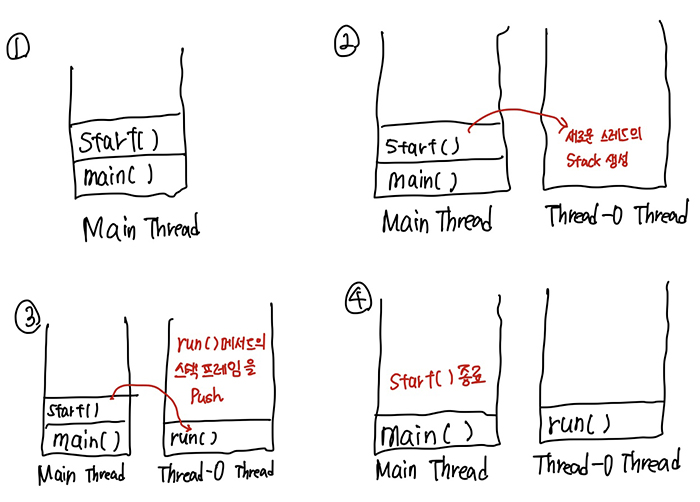 ①
start()
main()
Main Thread
②
start()
main()
Main Thread
새로운 스레드의
Stack 생성
Thread-0 Thread
③
start()
main()
Main Thread
run()메서드의
스택 프레임을
Push
run()
Thread-0 Thread
④
Start() 종료
main()
Main Thread
run()
Thread-0 Thread